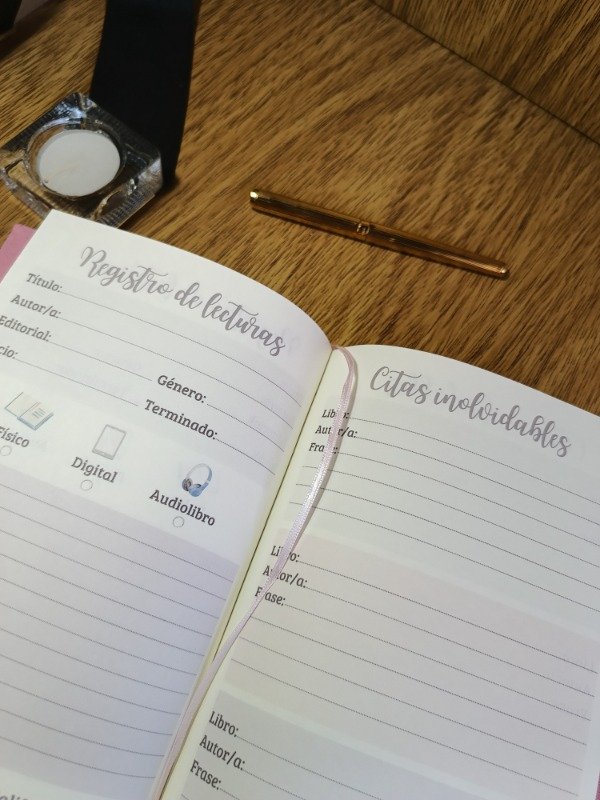 Registro de lecturas
Título:
Autor/a:
Editorial:
Género:
Terminado:
Físico
Digital
Audiolibro
Citas inolvidables
Libro:
Autor/a:
Frase:
Libro:
Autor/a:
Frase:
Libro:
Autor/a:
Frase: